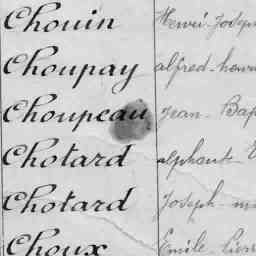 Chouin Henri-Joseph
Choupay alfred-henri
Choupeau Jean-Bap
Chotard alphonse E
Chotard Joseph-m
Choux Emile-Pierr